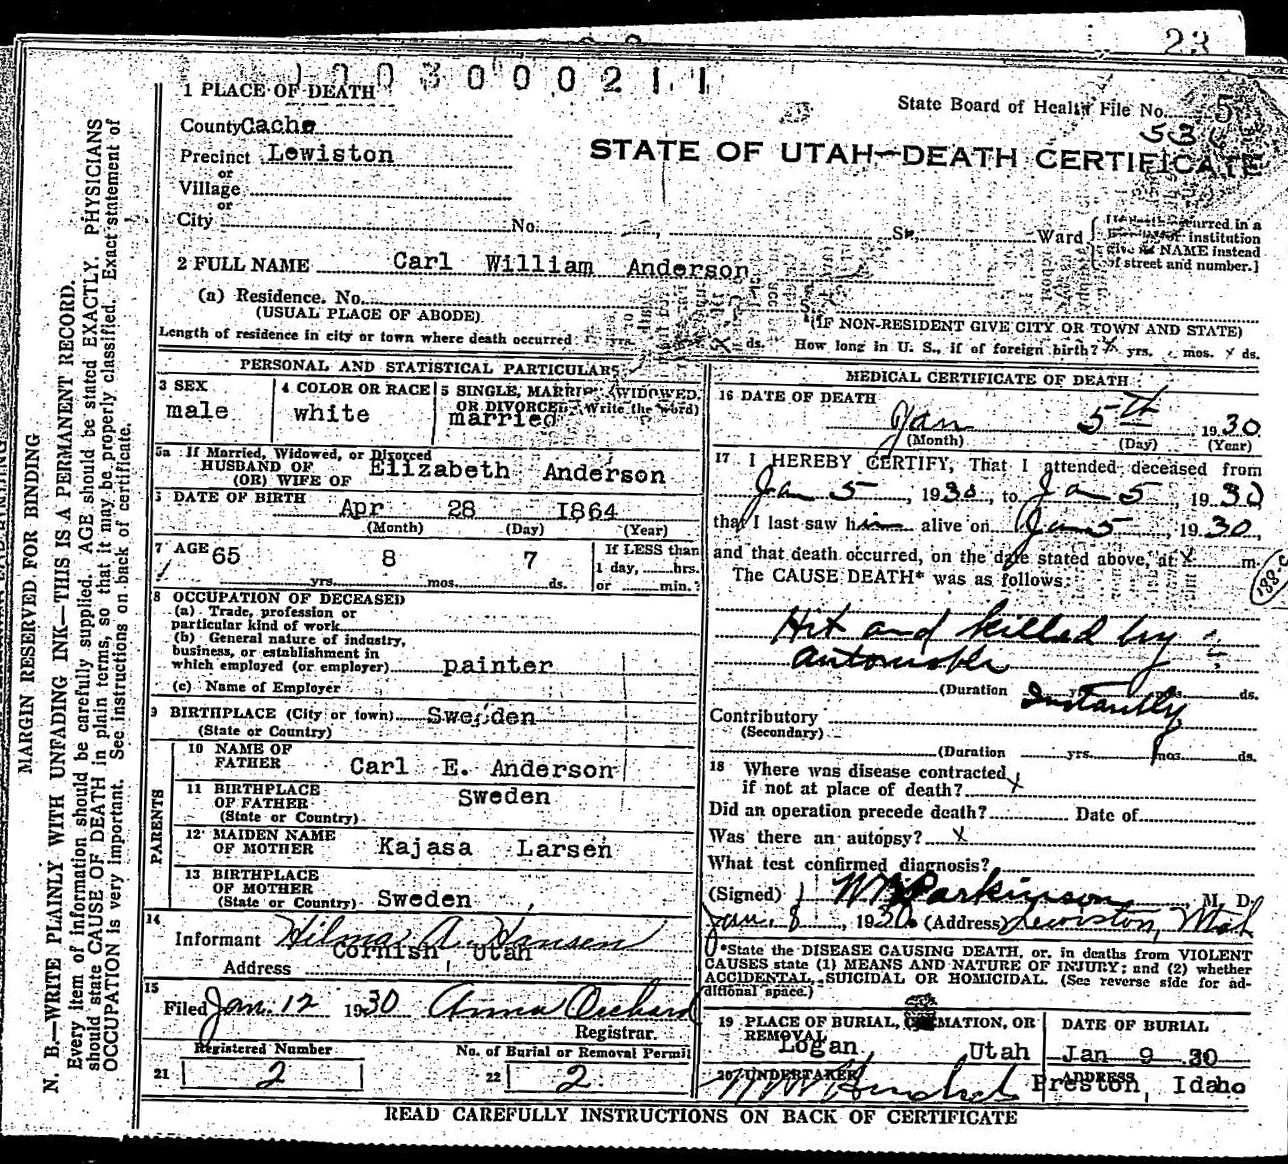 23
1003000211
1 PLACE OF DEATH
State Board of Health File No. 5
County Cache
Precinct Lewiston
STATE OF UTAH—DEATH CERTIFICATE
or
Village
or
City No. St., Ward
institution
give its NAME instead
of street and number.]
2 FULL NAME Carl William Anderson
(a) Residence. No.
(USUAL PLACE OF ABODE)
(IF NON-RESIDENT GIVE CITY OR TOWN AND STATE)
Length of residence in city or town where death occurred yrs. ds. How long in U. S., if of foreign birth? x yrs. mos. x ds.
PERSONAL AND STATISTICAL PARTICULARS
3 SEX
male
4 COLOR OR RACE
white
5 SINGLE, MARRIED, WIDOWED,
OR DIVORCED (Write the word)
married
5a If Married, Widowed, or Divorced
HUSBAND OF
(OR) WIFE OF Elizabeth Anderson
6 DATE OF BIRTH
Apr 28 1864
(Month) (Day) (Year)
7 AGE 65 8 7
yrs. mos. ds.
If LESS than
1 day, hrs.
or min.?
8 OCCUPATION OF DECEASED
(a) Trade, profession or
particular kind of work
(b) General nature of industry,
business, or establishment in
which employed (or employer) painter
(c) Name of Employer
9 BIRTHPLACE (City or town) Sweden
(State or Country)
PARENTS
10 NAME OF
FATHER Carl E. Anderson
11 BIRTHPLACE
OF FATHER Sweden
(State or Country)
12 MAIDEN NAME
OF MOTHER Kajasa Larsen
13 BIRTHPLACE
OF MOTHER
(State or Country) Sweden
14
Informant Hilma A. Hansen
Cornish, Utah
Address
15
Filed Jan. 12 1930 Anna Orchard
Registrar.
Registered Number
21 2
No. of Burial or Removal Permit
22 2
MEDICAL CERTIFICATE OF DEATH
16 DATE OF DEATH
Jan 5th 1930
(Month) (Day) (Year)
17 I HEREBY CERTIFY, That I attended deceased from
Jan 5, 1930, to Jan 5 1930
that I last saw him alive on Jan 5, 1930,
and that death occurred, on the date stated above, at x m.
The CAUSE DEATH* was as follows:
188 c
Hit and killed by
automobile
(Duration yrs. mos. ds.
Instantly
Contributory
(Secondary)
(Duration yrs. mos. ds.
18 Where was disease contracted
if not at place of death? x
Did an operation precede death? Date of
Was there an autopsy? x
What test confirmed diagnosis?
(Signed) W B Parkinson, M. D.
Jan. 8, 1930. (Address) Lewiston, Utah
*State the DISEASE CAUSING DEATH, or, in deaths from VIOLENT
CAUSES state (1) MEANS AND NATURE OF INJURY; and (2) whether
ACCIDENTAL, SUICIDAL OR HOMICIDAL. (See reverse side for ad-
ditional space.)
19 PLACE OF BURIAL, CREMATION, OR
REMOVAL
Logan Utah
DATE OF BURIAL
Jan 9 30
20 UNDERTAKER
ADDRESS
Preston, Idaho
READ CAREFULLY INSTRUCTIONS ON BACK OF CERTIFICATE
MARGIN RESERVED FOR BINDING
N. B.—WRITE PLAINLY WITH UNFADING INK—THIS IS A PERMANENT RECORD.
Every item of information should be carefully supplied. AGE should be stated EXACTLY. PHYSICIANS
should state CAUSE OF DEATH in plain terms, so that it may be properly classified. Exact statement of
OCCUPATION is very important. See instructions on back of certificate.